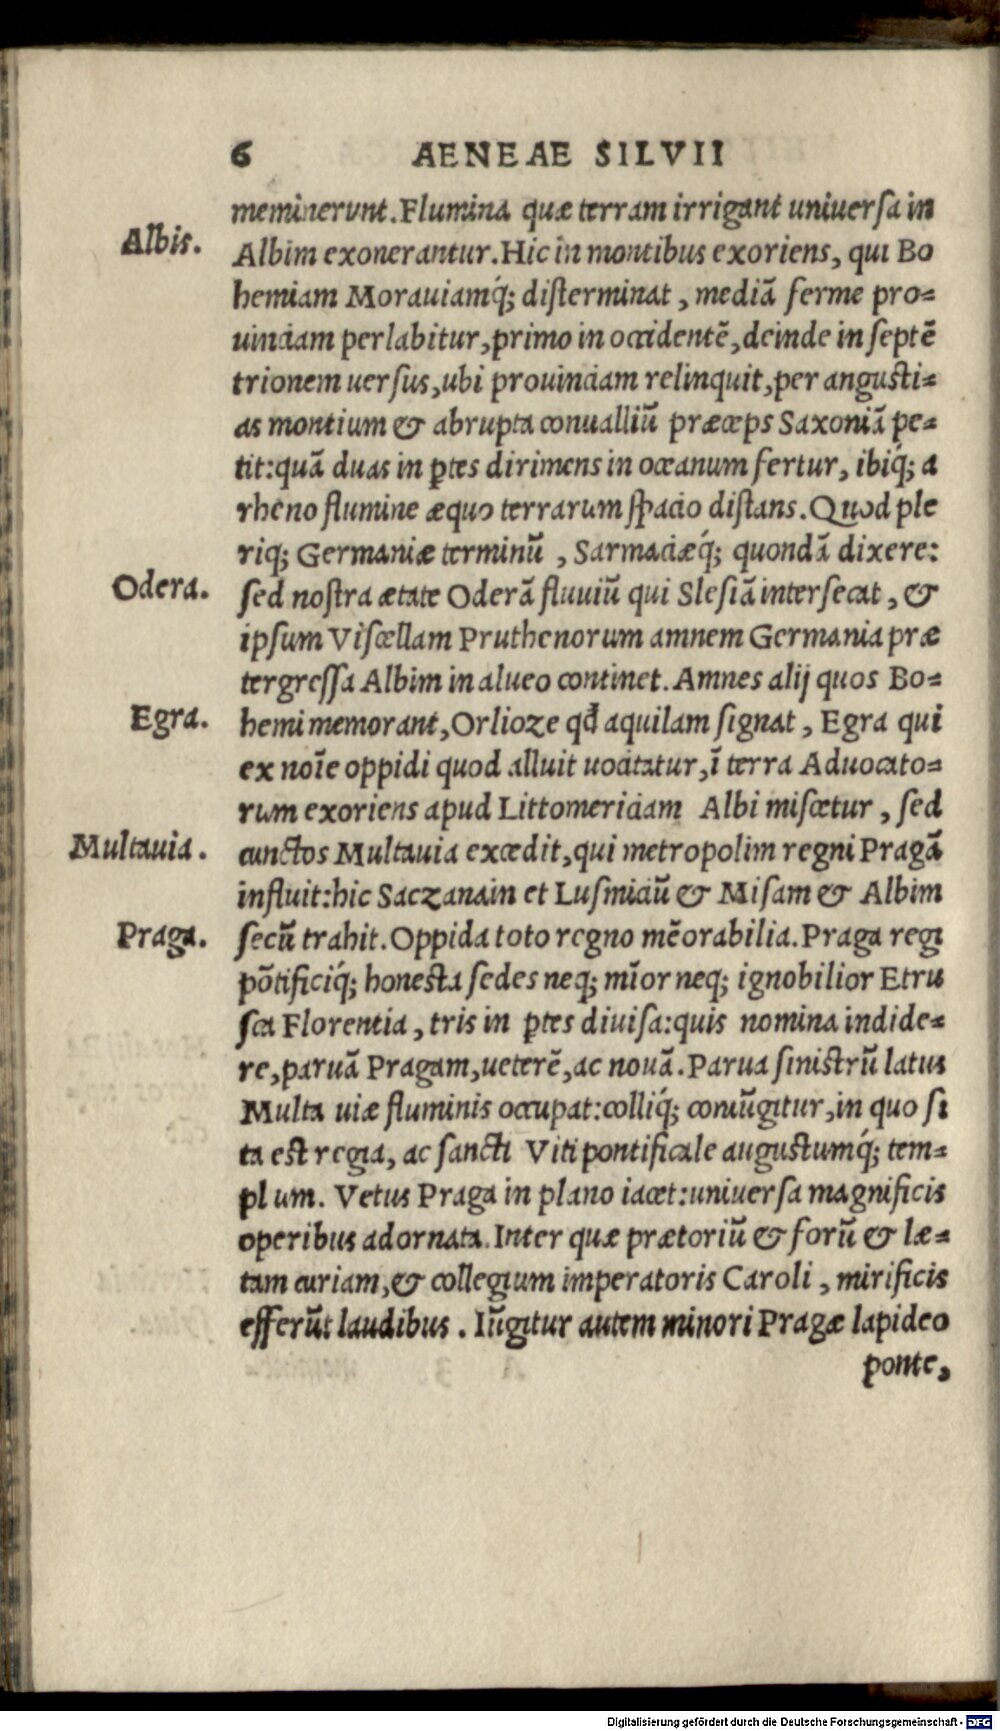 6 AENEAE SILVII
meminerunt. Flumina quæ terram irrigant uniuersa in
Albis.
Albim exonerantur. Hic in montibus exoriens, qui Bo
hemiam Morauiamq́; disterminat, mediā ferme pro-
uinciam perlabitur, primo in occidentē, deinde in septē
trionem uersus, ubi prouinciam relinquit, per angusti-
as montium & abrupta conualliū præceps Saxoniā pe-
tit: quā duas in ꝑtes dirimens in oceanum fertur, ibiq́; a
rheno flumine æquo terrarum spacio distans. Quod ple
riq; Germaniæ terminū, Sarmaciæq́; quondā dixere:
Odera.
sed nostra ætate Oderā fluuiū qui Slesiā intersecat, &
ipsum Viscellam Pruthenorum amnem Germania præ
tergressa Albim in alueo continet. Amnes alij quos Bo-
Egra.
hemi memorant, Orlioze qđ aquilam signat, Egra qui
ex noīe oppidi quod alluit uocitatur, ī terra Aduocato-
rum exoriens apud Littomericiam Albi miscetur, sed
Multauia.
cunctos Multauia excedit, qui metropolim regni Pragā
influit: hic Saczanain et Lusmiciū & Misam & Albim
Praga.
secū trahit. Oppida toto regno mēorabilia. Praga regi
pōtificiq́; honesta sedes neq; mīor neq; ignobilior Etru
sca Florentia, tris in ꝑtes diuisa: quis nomina indide-
re, paruā Pragam, ueterē, ac nouā. Parua sinistrū latus
Multa uiæ fluminis occupat: colliq́; coniūgitur, in quo si
ta est regia, ac sancti Viti pontificale augustumq́; tem-
pl um. Vetus Praga in plano iacet: uniuersa magnificis
operibus adornata. Inter quæ prætoriū & forū & læ-
tam curiam, & collegium imperatoris Caroli, mirificis
efferūt laudibus. Iūgitur autem minori Pragæ lapideo
ponte,
Digitalisierung gefördert durch die Deutsche Forschungsgemeinschaft - DFG